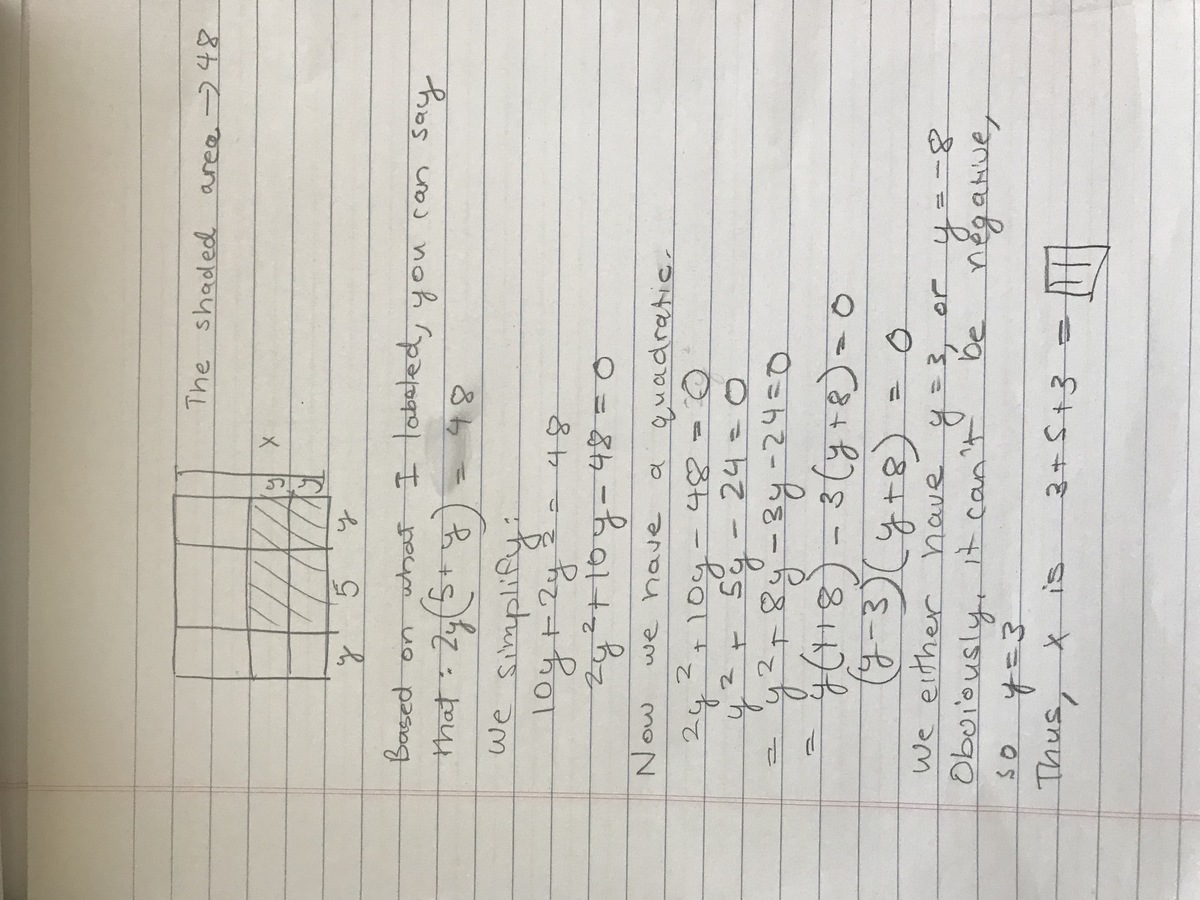 The shaded area → 48
y
y
x
y 5 y
Based on what I labeled, you can say
that: 2y(5+y) = 48
We simplify:
10y + 2y² = 48
2y² + 10y - 48 = 0
Now we have a quadratic.
2y² + 10y - 48 = 0
y² + 5y - 24 = 0
= y² + 8y - 3y - 24 = 0
= y(y+8) - 3(y+8) = 0
(y-3)(y+8) = 0
We either have y = 3, or y = -8
Obviously, it can't be negative,
so y = 3
Thus, x is 3+5+3 = 11